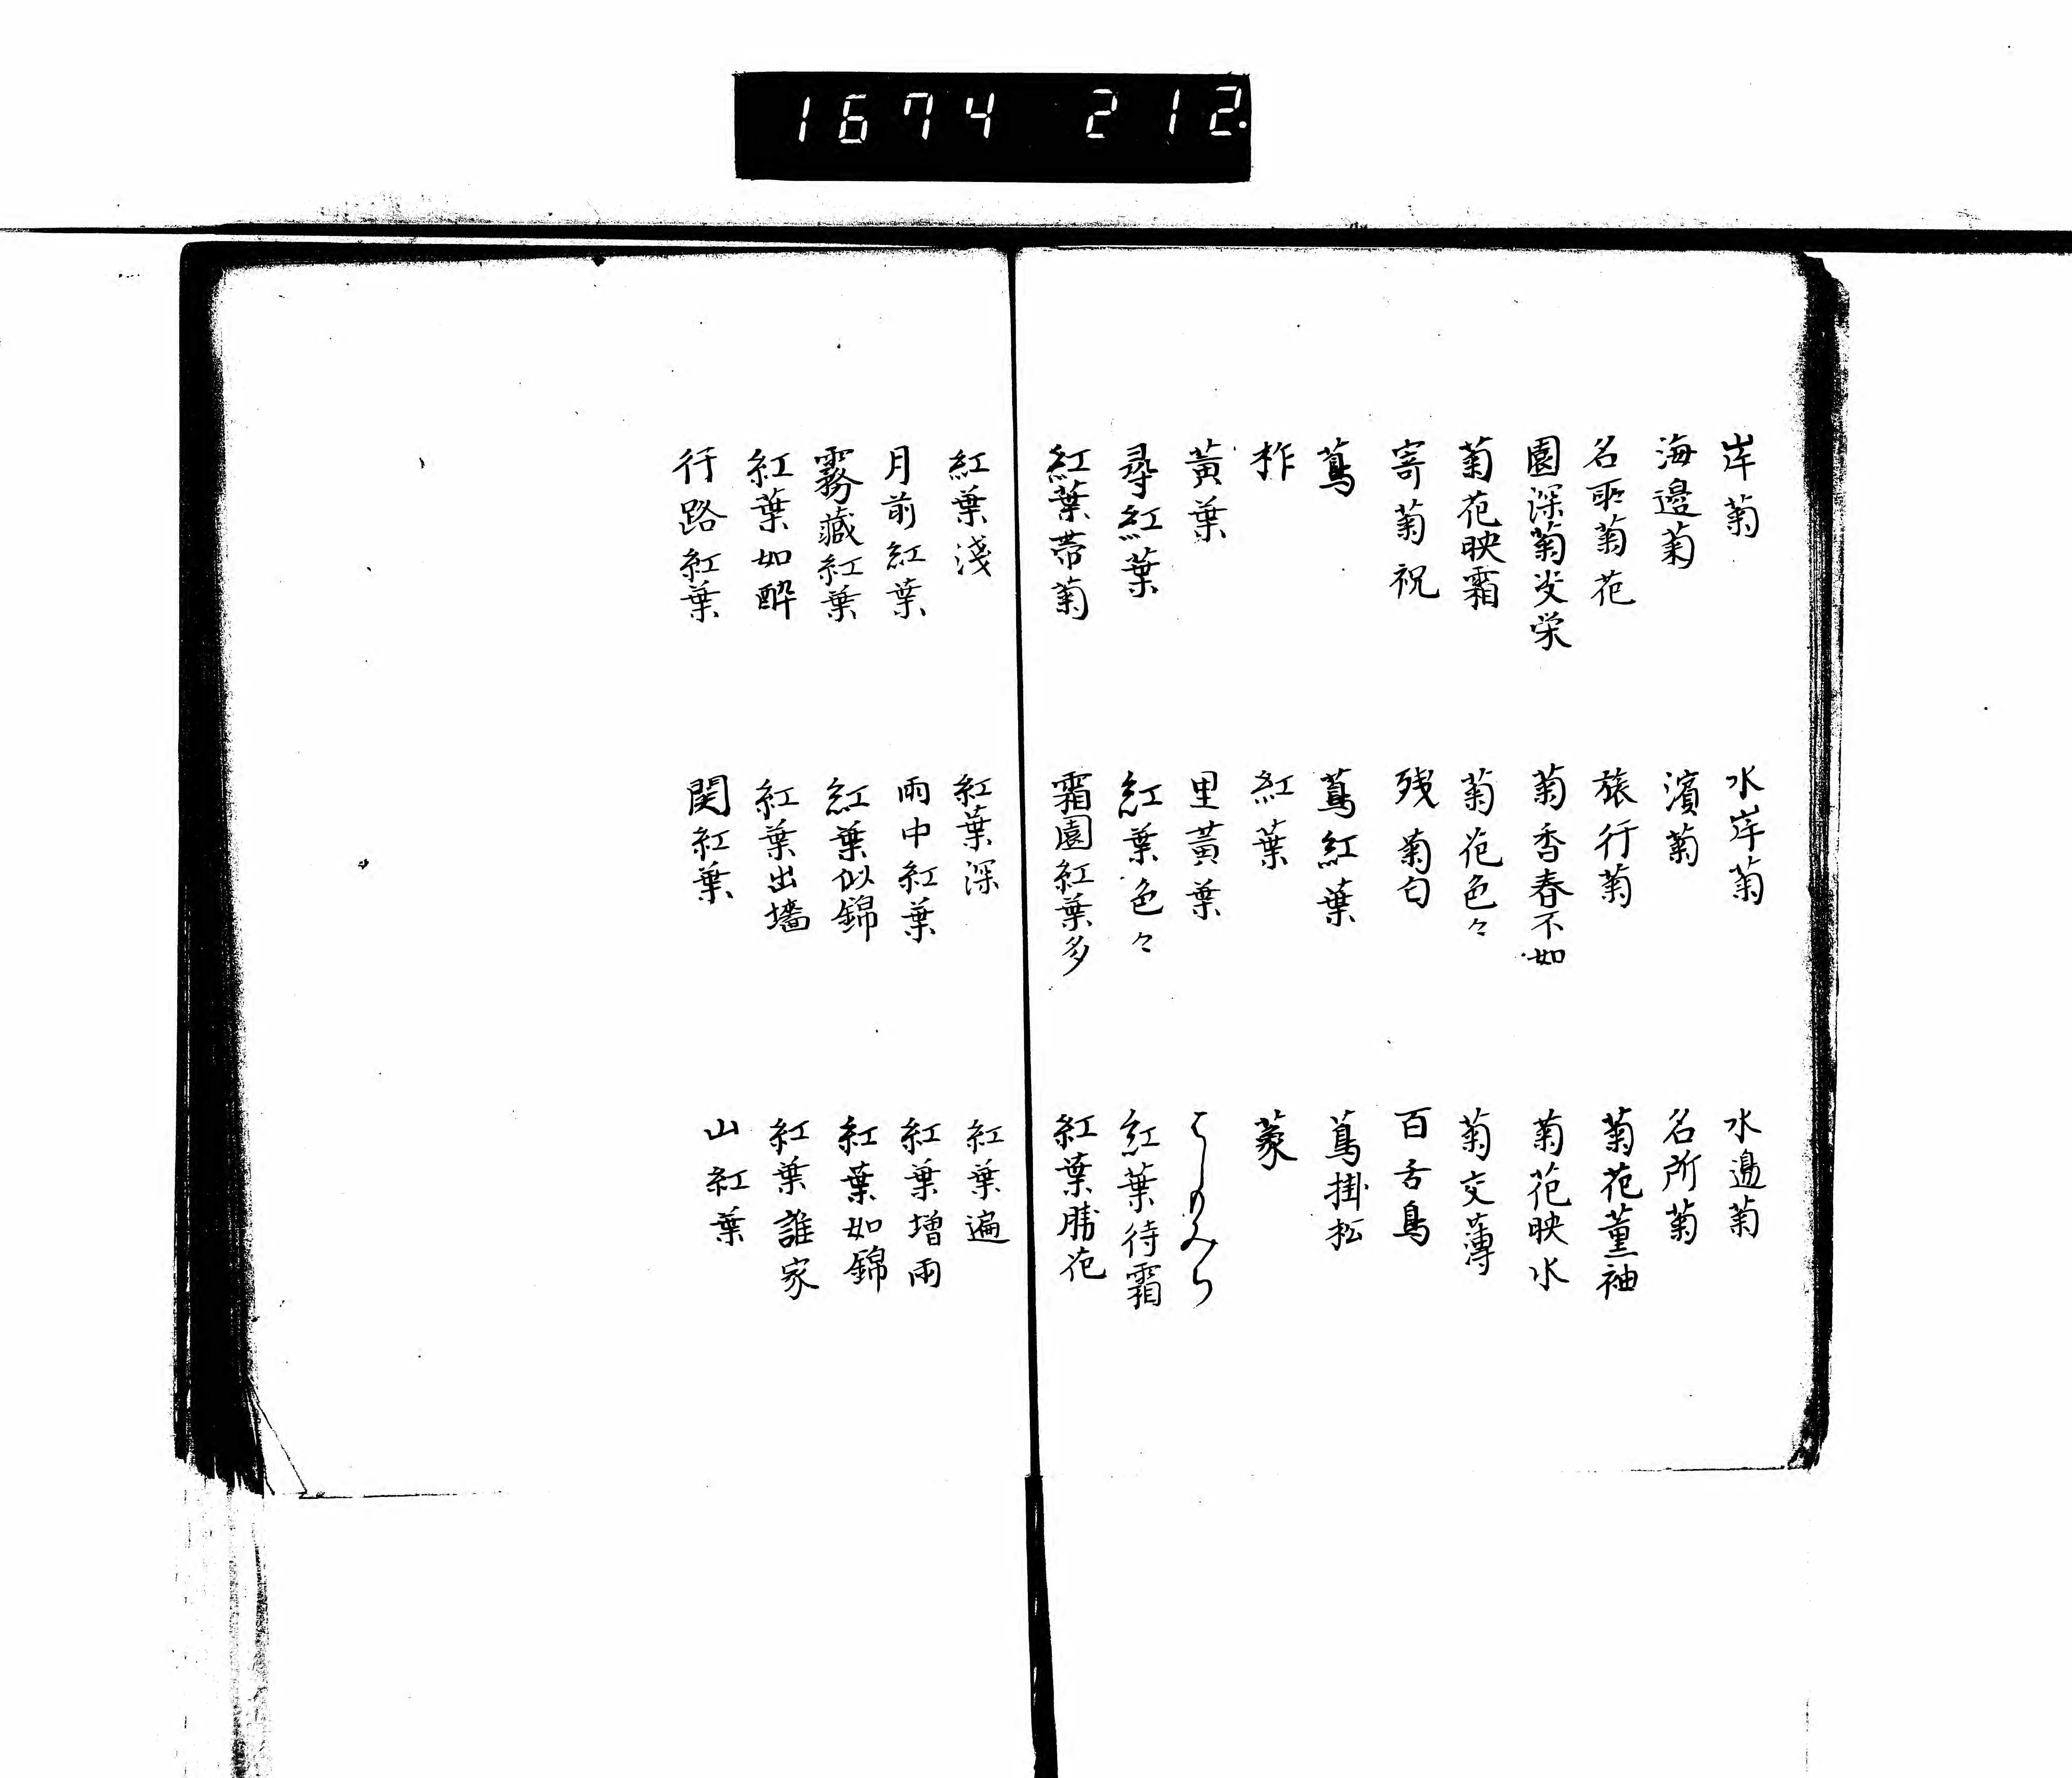 1674 212.
岸菊 水岸菊 水邉菊
海邊菊 濱菊 名所菊
名所菊花 旅行菊 菊花薫袖
園深菊 栄 菊香春不如 菊花映水
菊花映霜 菊花色々 菊交薄
寄菊祝 残菊匂 百舌鳥
蔦 蔦紅葉 蔦掛松
柞 紅葉
黄葉 里黄葉 はしもみち
尋紅葉 紅葉色々 紅葉待霜
紅葉帯菊 霜園紅葉多 紅葉勝花
紅葉淺 紅葉深 紅葉遍
月前紅葉 雨中紅葉 紅葉増雨
霧藏紅葉 紅葉似錦 紅葉如錦
紅葉如酔 紅葉出墻 紅葉誰家
行路紅葉 関紅葉 山紅葉